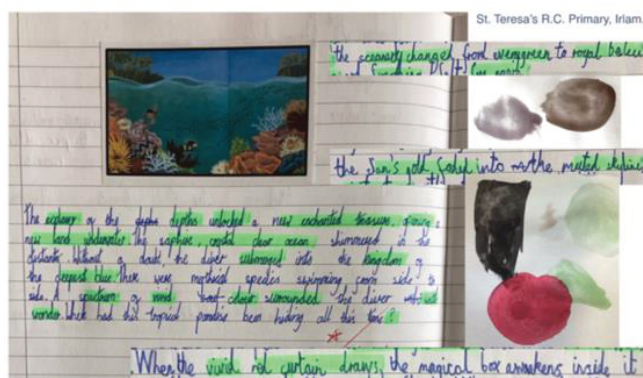 St. Teresa's R.C. Primary, Irlam.
the scenery changed from evergreen to royal
the Sun's gold faded into the muted skyline
The explorer of the depths unlocked a new enchanted treasure, a
new land underwater. The saphire, crystal clear ocean shimmered in the
distants. Without a doubt, the diver submerged into the kingdom of
the deepest blue. There were mythical species swimming from side to
side. A spectrum of vivid colour surrounded the diver with
wonder. When had this tropical paradise been hiding all this time?
When the vivid red curtain draws, the magical box awakens inside it